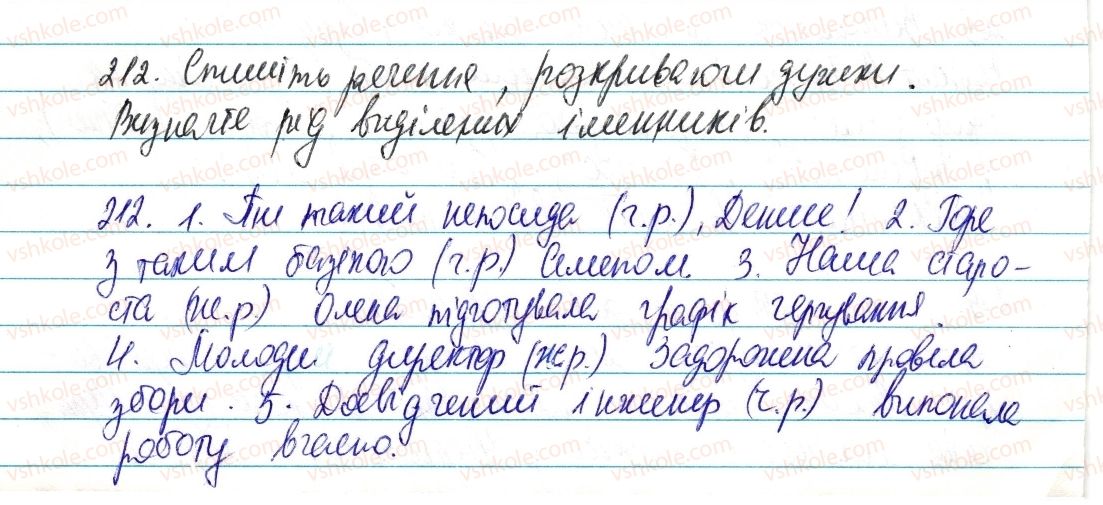 212. Спишіть речення, розкриваючи дужки.
Визначте рід виділених іменників.
212. 1. Ти такий непосида (ч.р.), Денисе! 2. Горе
з таким базікою (ч.р.) Семеном. 3. Наша старо-
ста (ж.р.) Олена підготувала графік чергування.
4. Молодий директор (ж.р.) Задорожна провела
збори. 5. Досвідчений інженер (ч.р.) виконала
роботу вчасно.